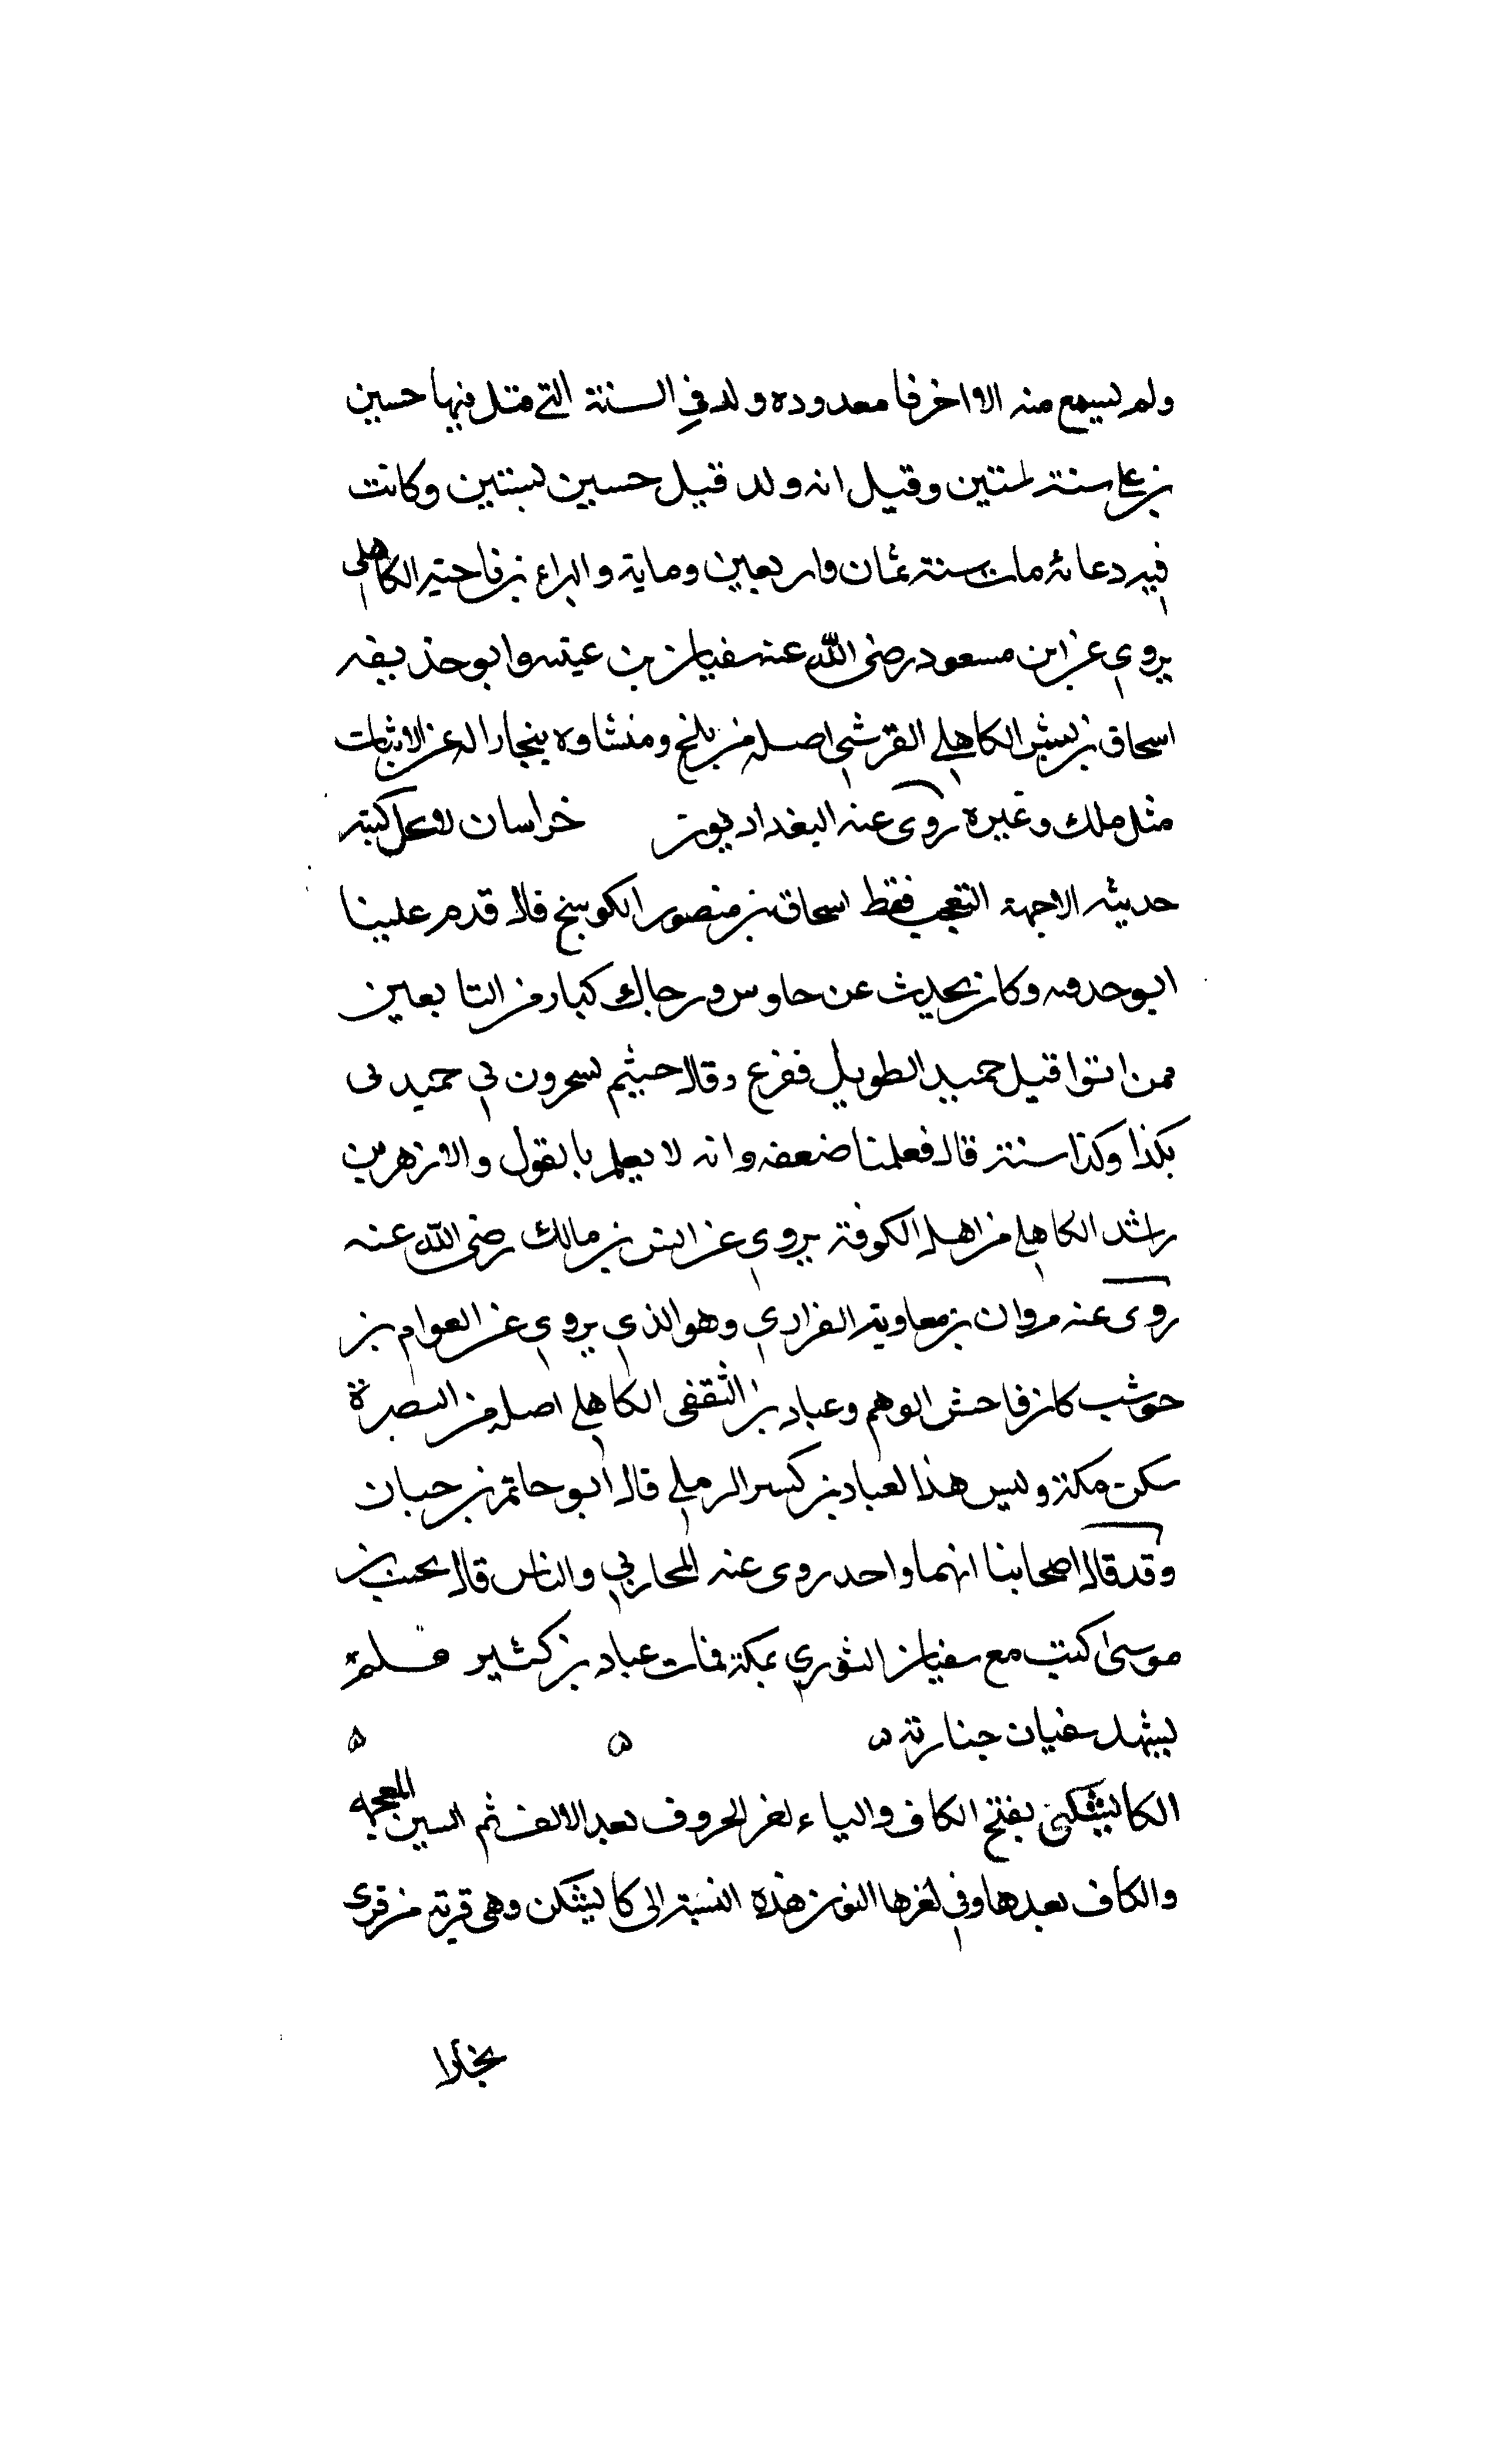 ولم يسمع منه الا اخرفا معدوده ولد في السنة التي قتل فيها حسين
بن علي سنة ستين وقيل انه ولد قبل حسين بسنتين وكانت
فيه دعابة مات سنة ثمان واربعين وماية والبراء بن ناحية الكاهلي
يروي عن ابن مسعود رضى الله عنه سفيان بن عيينه وابو حذيفه
اسحاق بن بشر الكاهلي القرشي اصله من بلخ ومنشاوه ببخارا له عن الاثبات
مثل ملك وغيره روى عنه البغداديون خراسان لا يحل كتبة
حديثه الا جهة التعجب فقط اسحاق بن منصور الكوسج قال قدم علينا
ابو حدىفه وكان يحدث عن طاوس ورجال كبار من التابعين
ممن ماتوا قبل حميد الطويل ففزع وقال جيتم تسخرون بي حميد لى
بكذا وكذا سنة قال فعلمنا ضعفه وانه لا يعلم بالقول والازهر بن
راشد الكاهلي من اهل الكوفة يروي عن انس بن مالك رضى الله عنه
روى عنه مروان بن معاوية الفزاري وهو الذي يروي عن العوام بن
حوشب كان فاحش الوهم وعباد بن الثقفى الكاهلي اصله من البصرة
سكن مكة وليس هذا لعباد بن كسر الرملي قال ابو حاتم بن حبان
وقد قال اصحابنا انهما واحد روى عنه المحاربي والناس قال يحيى بن
موسى كنت مع سفيان الثوري بمكة فمات عباد بن كثير فلم
يشهد سفيان جنازته ه ه ه
الكايشكنى بفتح الكاف والياء اخر الحروف بعد الالف ثم السين المعجمه
والكاف بعدها وفي اخرها النون هذه النسبة الى كايشكن وهى قرية من قرى
بخارا